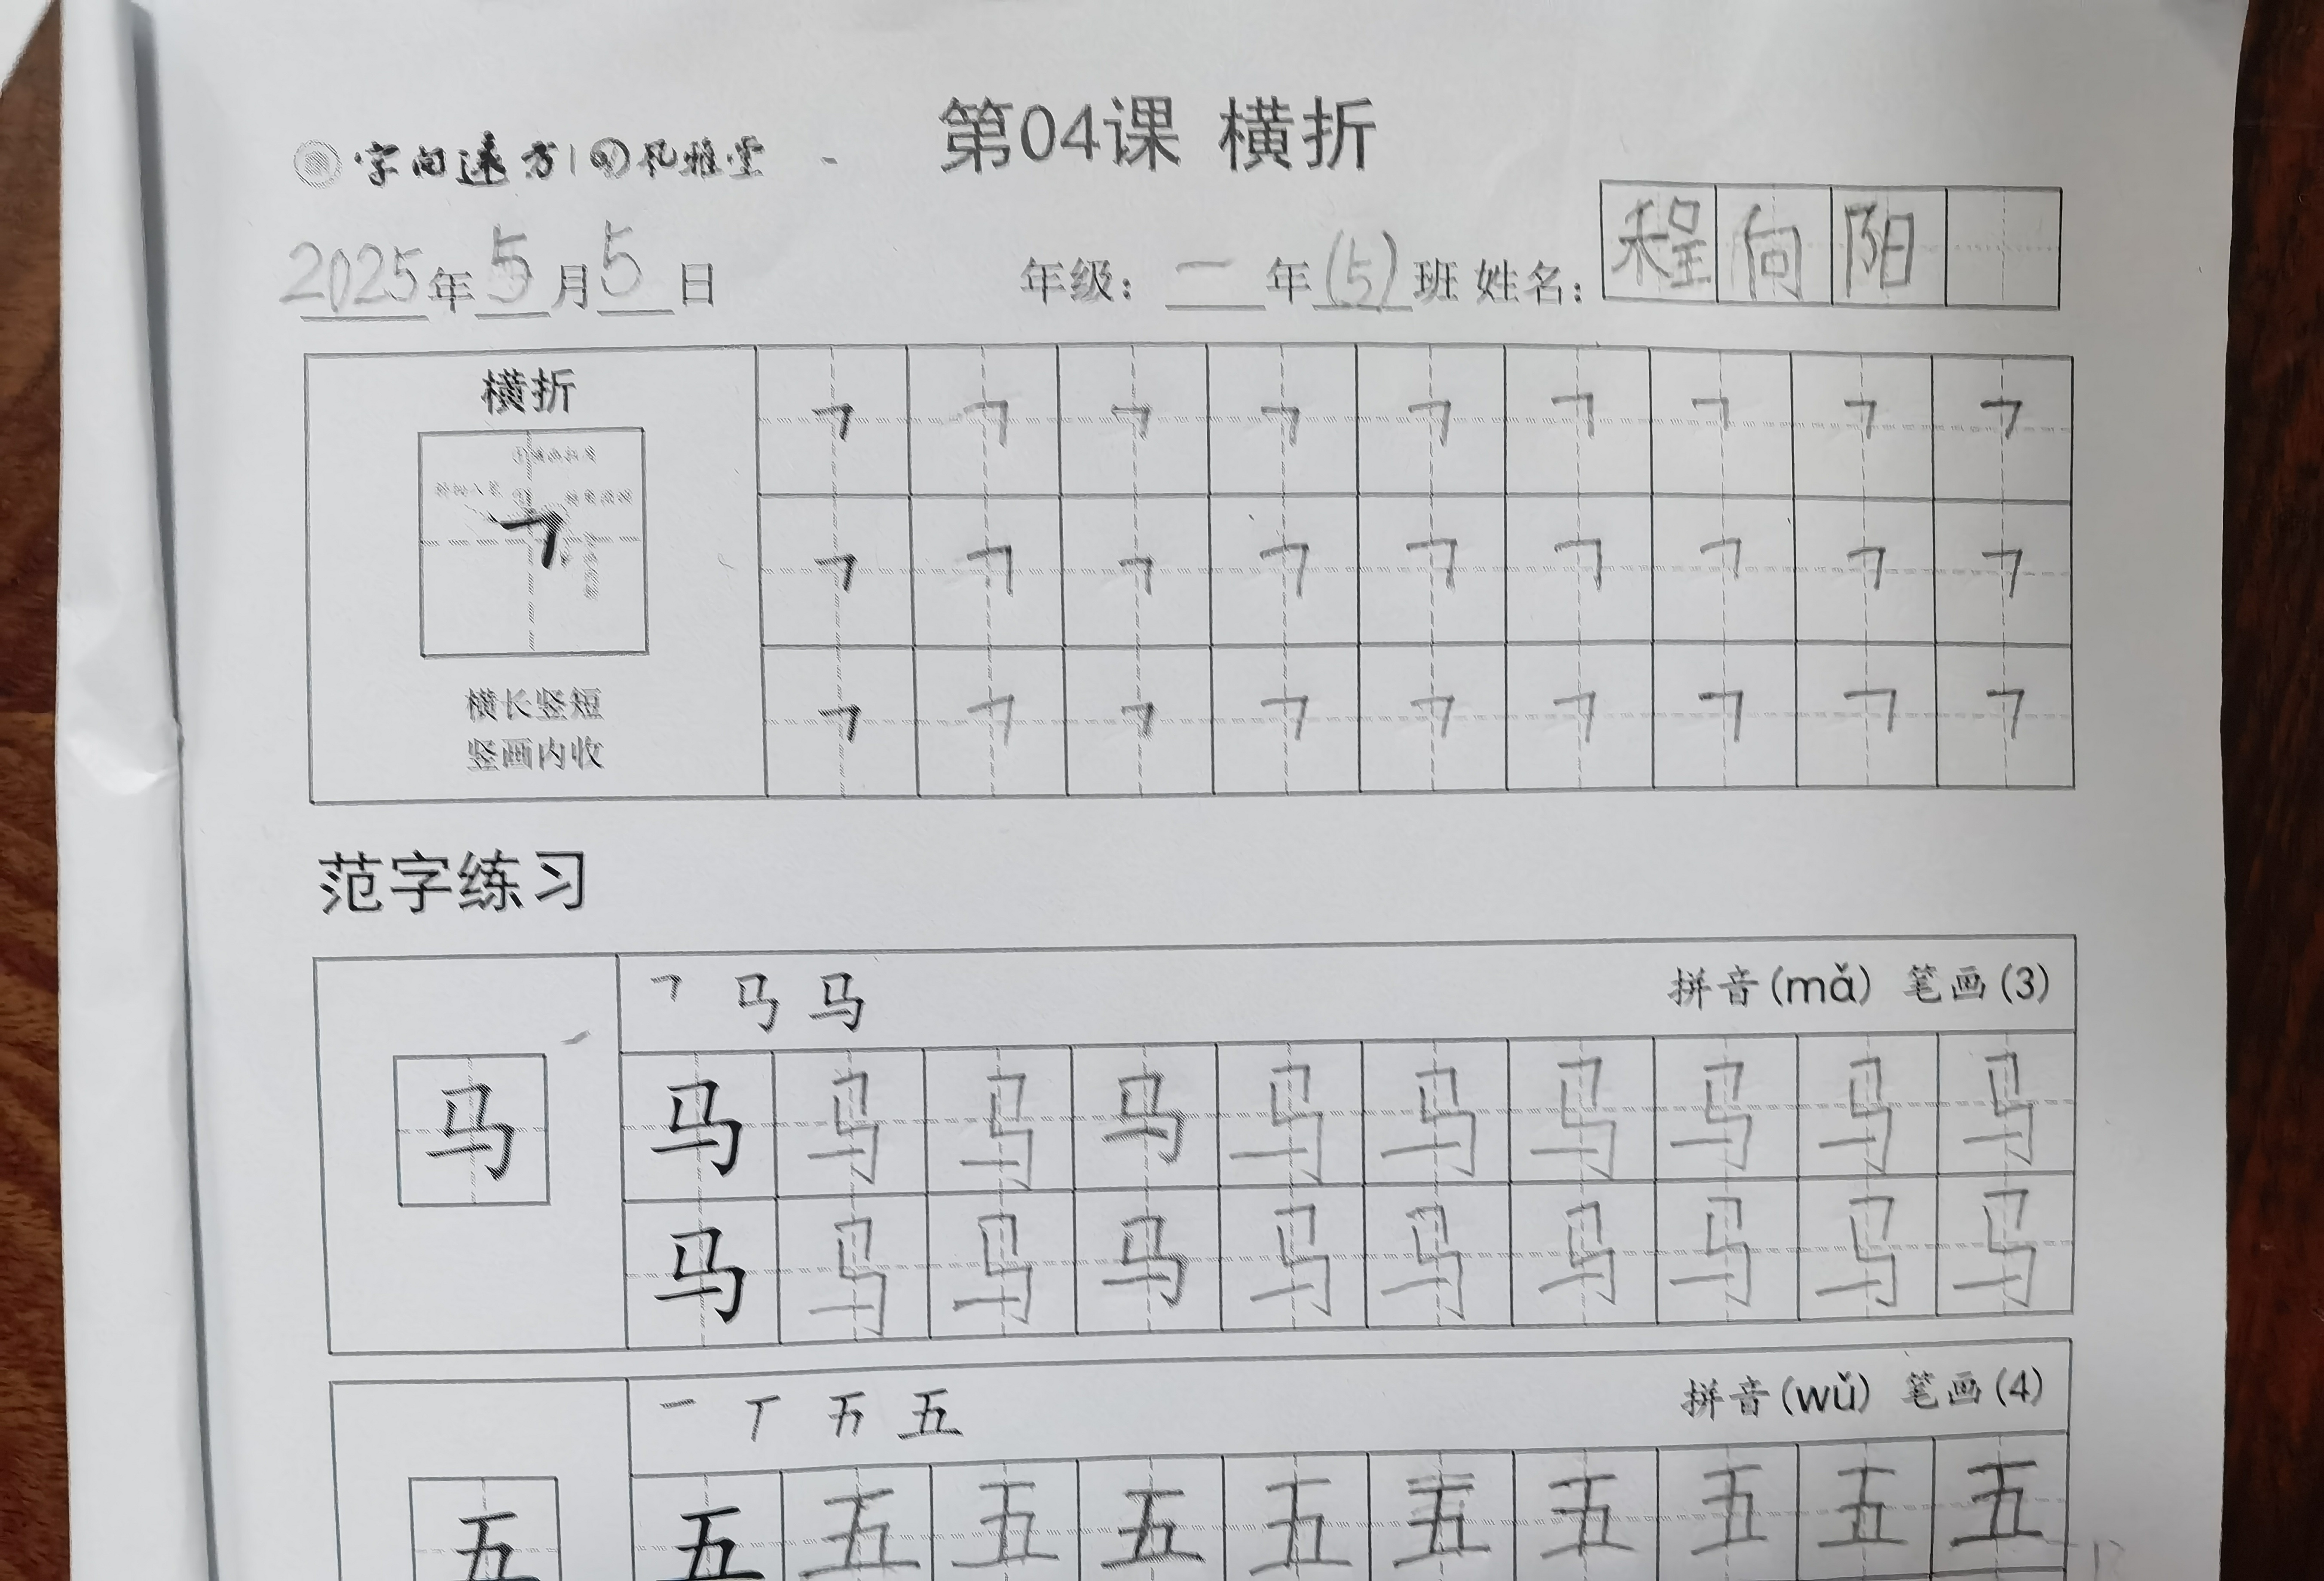 第04课 横折
字向远方 孔雅堂
2025年5月5日 年级：一年(5)班 姓名：程向阳
横折
横长竖短
竖画内收
㇕ ㇕ ㇕ ㇕ ㇕ ㇕ ㇕ ㇕ ㇕
㇕ ㇕ ㇕ ㇕ ㇕ ㇕ ㇕ ㇕ ㇕
㇕ ㇕ ㇕ ㇕ ㇕ ㇕ ㇕ ㇕ ㇕
范字练习
马 拼音(mǎ) 笔画(3)
马
马 马 马 马 马 马 马 马 马 马
马 马 马 马 马 马 马 马 马 马
一 丅 五 拼音(wǔ) 笔画(4)
五
五 五 五 五 五 五 五 五 五 五